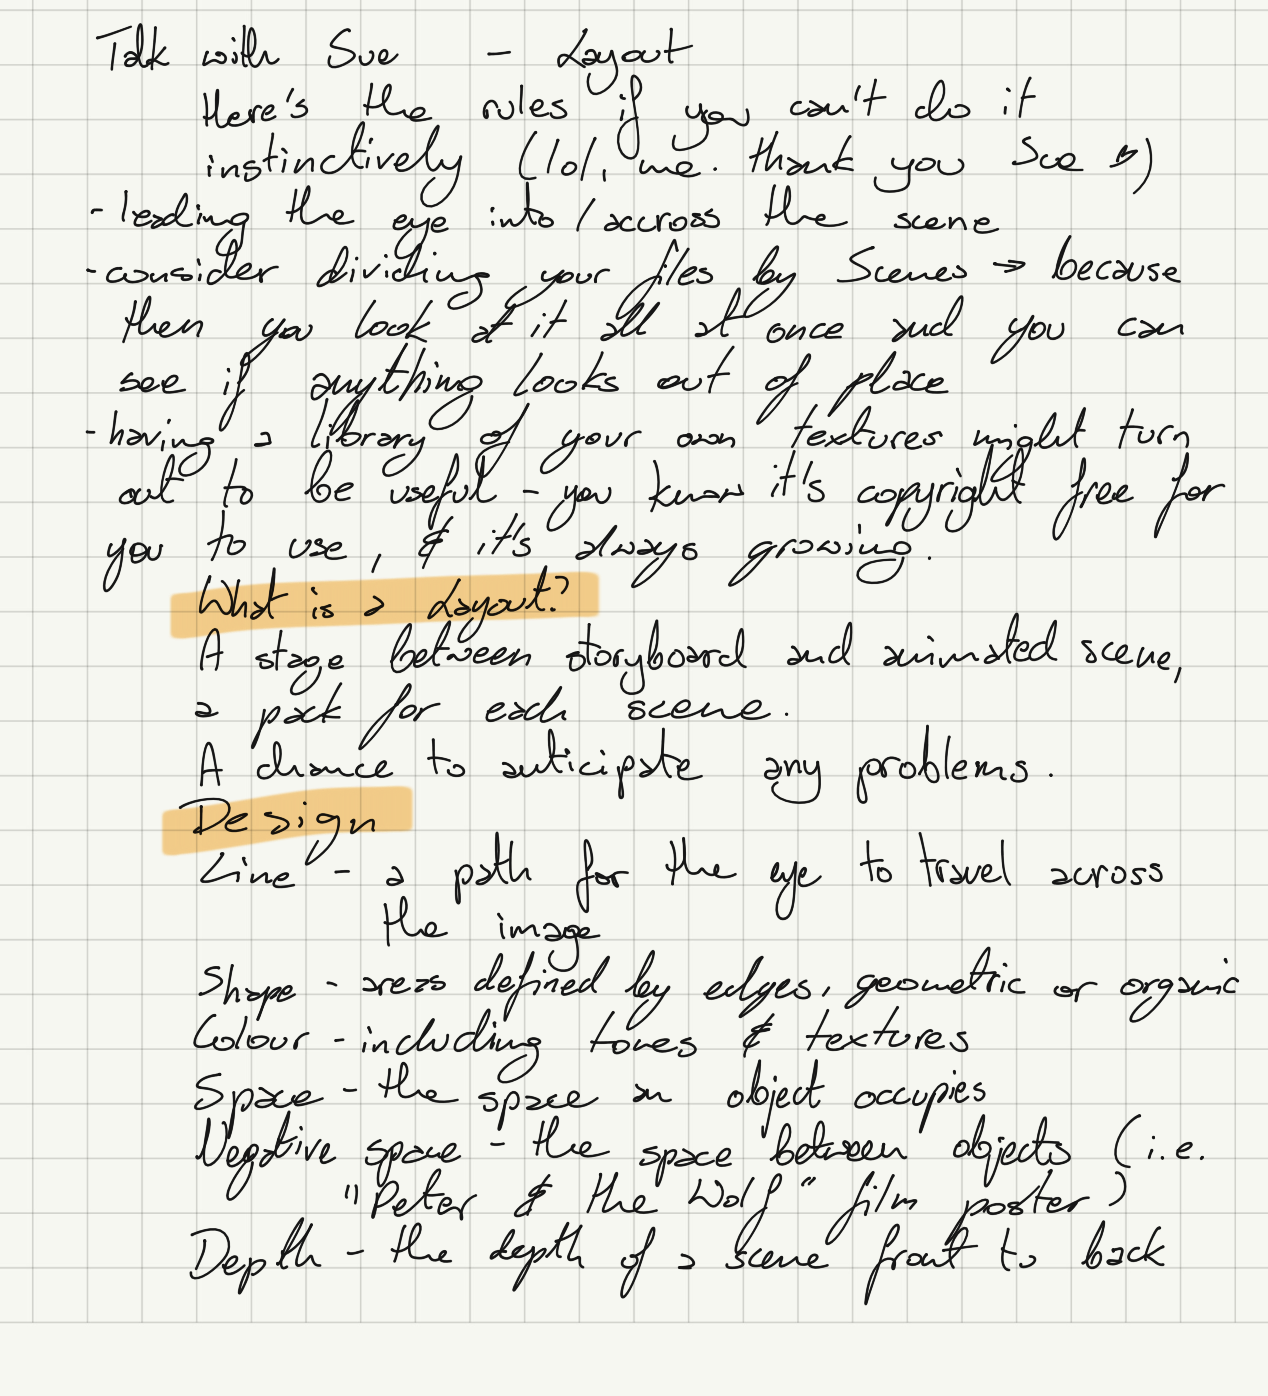 Talk with Sue - Layout
Here's the rules if you can't do it
instinctively (lol, me. thank you Sue)
- leading the eye into / accross the scene
- consider dividing your files by Scenes → because
then you look at it all at once and you can
see if anything looks out of place
- having a library of your own textures might turn
out to be useful - you know it's copyright free for
you to use, & it's always growing.
What is a Layout?
A stage between storyboard and animated scene,
a pack for each scene.
A chance to anticipate any problems.
Design
Line - a path for the eye to travel across
the image
Shape - areas defined by edges, geometric or organic
Colour - including tones & textures
Space - the space an object occupies
Negative space - the space between objects (i.e.
"Peter & the Wolf" film poster)
Depth - the depth of a scene front to back